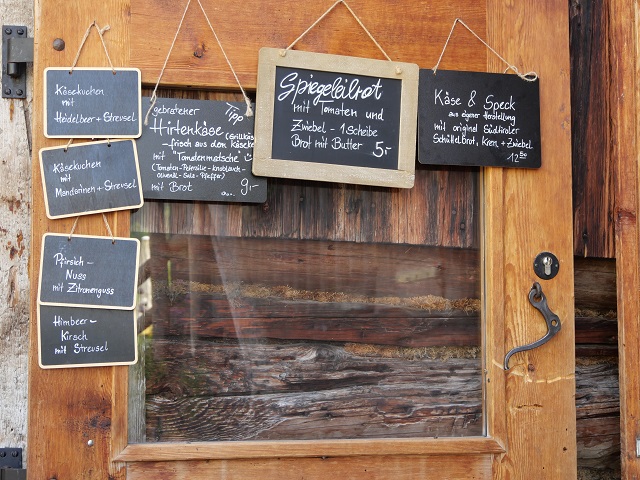 Käsekuchen
mit
Heidelbeer + Streusel
Käsekuchen
mit
Mandarinen + Streusel
Pfirsich-
Nuss
mit Zitronenguss
Himbeer-
Kirsch
mit Streusel
gebratener Tipp
Hirtenkäse (Grillkäse
- frisch aus dem Käsekes
mit "Tomatenmatsche" ☺
(Tomaten-Petersilie-Knoblauch-
Olivenöl-Salz-Pfeffer)
mit Brot 9,-
Spiegeleibrot
mit Tomaten und
Zwiebel - 1 Scheibe
Brot mit Butter 5,-
Käse & Speck
aus eigener Herstellung
mit original Südtiroler
Schüttelbrot, Kren, + Zwiebel
12,50